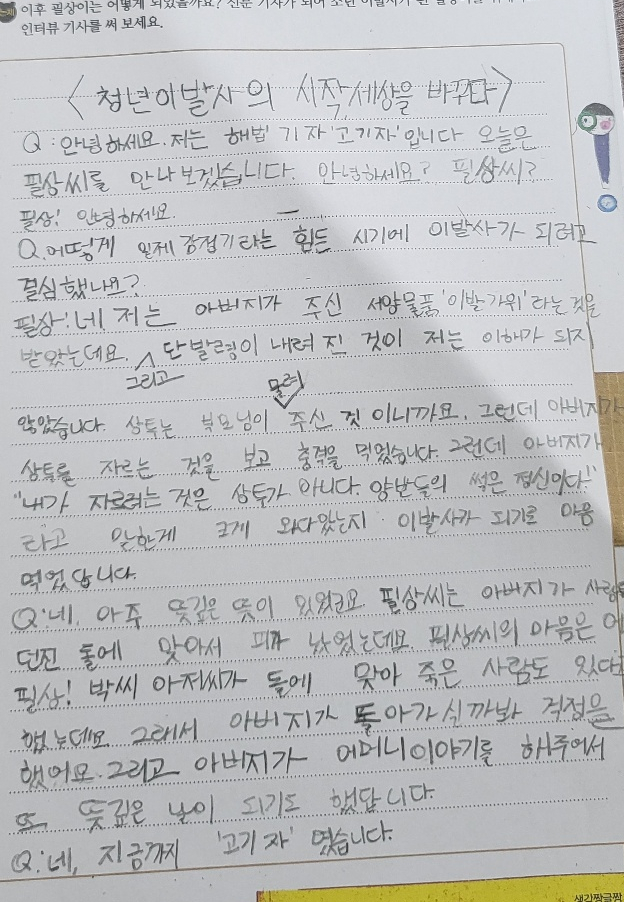 이후 필상이는 어떻게 되었을까요? 신문 기자가 되어 소년 이발사가 된
인터뷰 기사를 써 보세요.
<청년이발사의 시작, 세상을 바꾸다>
Q:안녕하세요. 저는 해법 기자 '고기자'입니다 오늘은
필상씨를 만나보겠습니다. 안녕하세요? 필상씨?
필상! 안녕하세요.
Q.어떻게 일제 강점기라는 힘든 시기에 이발사가 되려고
결심했나요?
필상!네, 저는 아버지가 주신 서양물품, '이발가위'라는 것을
받았는데요. 단발령이 내려진 것이 저는 이해가 되지
그리고
물려
않았습니다. 상투는 부모님이 주신 것 이니까요. 그런데 아버지가
상투를 자르는 것을 보고 충격을 먹었습니다. 그런데 아버지가
"내가 자르려는 것은 상투가 아니다. 양반들의 썩은 정신이다!"
라고 말한게 크게 와다았는지 이발사가 되기로 마음
먹었답니다.
Q:네, 아주 뜻깊은 뜻이 있었군요. 필상씨는 아버지가
던진 돌에 맞아서 피가 났었는데요. 필상씨의 마음은
필상! 박씨 아저씨가 돌에 맞아 죽은 사람도 있다
했는데요 그래서 아버지가 돌아가실까봐 걱정은
했어요. 그리고 아버지가 어머니이야기를 해주어서
또 뜻깊은 날이 되기도 했답니다.
Q:네, 지금까지 '고기자' 였습니다.
생각짱글짱